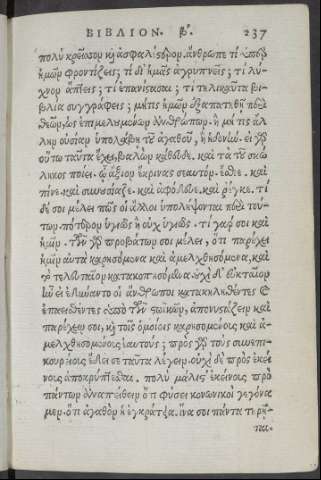 ΒΙΒΛΙΟΝ. β. 237
πολὺ κρεῖσσον κỳ ἀσφαλέστερον. ἄνθρωπε τί ὑπὲρ
ἡμῶν φροντίζεις; τί δι' ἡμᾶς ἀγρυπνεῖς; τί λύ-
χνον ἅπτεις; τί ἐπανίστασαι; τί τηλικαῦτα βι-
βλία συγγράφεις; μήτις ἡμῶν ἐξαπατηθῇ περὶ
θεῶν, ὡς ἐπιμελουμένων ἀνθρώπων, ἢ μή τις ἄλ-
λην οὐσίαν ὑπολάβῃ τοῦ ἀγαθοῦ, ἢ ἡδονὴν. εἰ γὰρ
οὕτω ταῦτα ἔχει, βαλὼν κάθευδε. καὶ τὰ τοῦ σκώ
ληκος ποίει. ὧν ἄξιον ἔκρινας σεαυτόν. ἔσθιε. καὶ
πῖνε. καὶ συνουσίαζε. καὶ ἀφόδευε. καὶ ῥέγκε. τί
δέ σοι μέλει πῶς οἱ ἄλλοι ὑπολήψονται περὶ τού-
των. πότερον ὑγιῶς ἢ οὐχ ὑγιῶς. τί γάρ σοι καὶ
ἡμῖν. τῶν γὰρ προβάτων σοι μέλει, ὅτι παρέχει
ἡμῖν αὐτὰ καρησόμενα καὶ ἀμελχθησόμενα, καὶ
τὸ τελευταῖον κατακοπησόμενα οὐχὶ δ' εὐκταῖον
ἦν εἰ ἐδύναντο οἱ ἄνθρωποι κατακηληθέντες καὶ
ἐπασθέντες ὑπὸ τῶν στωϊκῶν, ἀπονυστάζειν καὶ
παρέχειν σοι, κỳ τοῖς ὁμοίοις καρησομένους καὶ ἀ-
μελχθησομένους ἑαυτοὺς; πρὸς γὰρ τοὺς συνεπι-
κουρείους ἔδει σε ταῦτα λέγειν. οὐχὶ δὲ πρὸς ἐκεί
νους ἀποκρύπτεσθαι. πολὺ μάλιστ' ἐκείνους πρὸ
πάντων ἀναπείθειν ὅτι φύσει κοινωνικοὶ γεγόνα
μεν. ὅτι ἀγαθὸν ἡ ἐγκράτεια. ἵνα σοι πάντα τηρῆ-
ται.